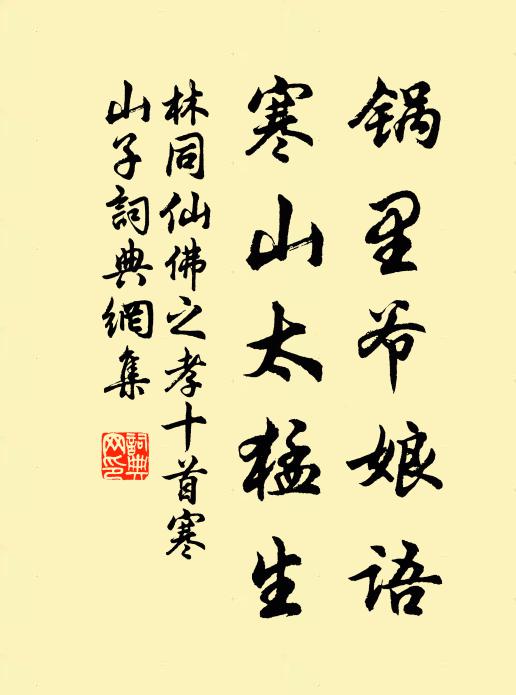 锅里爷娘语
寒山太猛生
林同仙佛之孝十首寒
山子詞典網集
詞典
网印